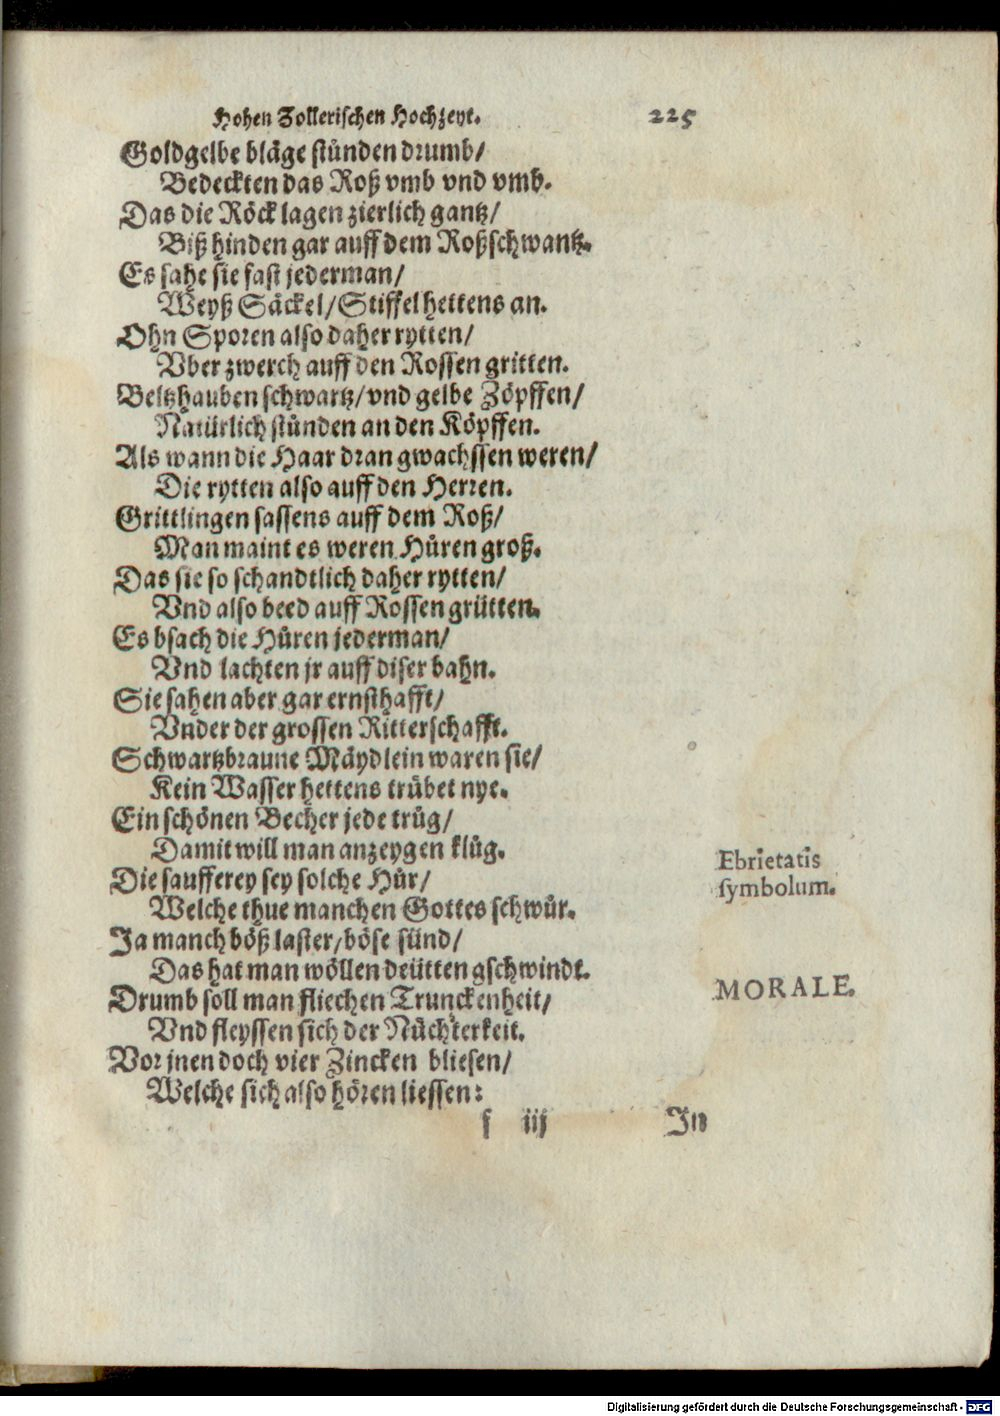 Hohen Zollerischen Hochzeyt. 225
Goldgelbe bläge stünden drumb/
Bedeckten das Roß vmb vnd vmb.
Das die Röck lagen zierlich gantz/
Biß hinden gar auff dem Roßschwantz.
Es sahe sie fast jederman/
Weyß Säckel/Stiffel hettens an.
Ohn Sporen also daher rytten/
Vber zwerch auff den Rossen gritten.
Beltzhauben schwartz/vnd gelbe Zöpffen/
Natürlich stünden an den Köpffen.
Als wann die Haar dran gwachssen weren/
Die rytten also auff den Herren.
Grittlingen sassens auff dem Roß/
Man maint es weren Hůren groß.
Das sie so schandtlich daher rytten/
Vnd also beed auff Rossen grütten.
Es bsach die Hůren jederman/
Vnd lachten jr auff diser bahn.
Sie sahen aber gar ernsthafft/
Vnder der grossen Ritterschafft.
Schwartzbraune Mäydlein waren sie/
Kein Wasser hettens trübet nye.
Ein schönen Becher jede trůg/
Damit will man anzeygen klůg.
Die saufferey sey solche Hůr/
Ebrietatis
symbolum.
Welche thue manchen Gottes schwůr.
Ja manch böß laster/böse sünd/
Das hat man wöllen deütten gschwindt.
Drumb soll man fliechen Trunckenheit/
MORALE.
Vnd fleyssen sich der Nüchterkeit.
Vor jnen doch vier Zincken bliesen/
Welche sich also hören liessen:
f iij In
Digitalisierung gefördert durch die Deutsche Forschungsgemeinschaft - DFG